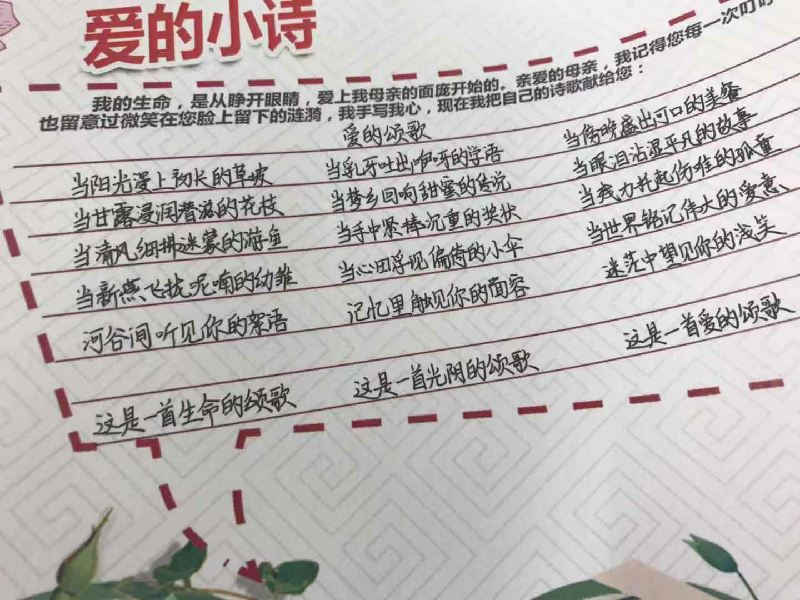 爱的小诗
我的生命，是从睁开眼睛，爱上我母亲的面庞开始的。亲爱的母亲，我记得您每一次叮
也留意过微笑在您脸上留下的涟漪，我手写我心，现在我把自己的诗歌献给您：
爱的颂歌
当阳光漫上初长的草坡
当甘露浸润潜滋的花枝
当清风细拂迷蒙的游鱼
当新燕飞找呢喃的幼雏
河谷间听见你的絮语
这是一首生命的颂歌
当乳牙吐出咿呀的学语
当梦乡回响甜蜜的传说
当手中紧捧沉重的奖状
当心田浮现偏倚的小伞
记忆里触见你的面容
这是一首光阴的颂歌
当傍晚盛出可口的美餐
当眼泪沾湿平凡的故事
当我力托起伤雅的孤童
当世界铭记伟大的爱意
迷茫中望见你的浅笑
这是一首爱的颂歌